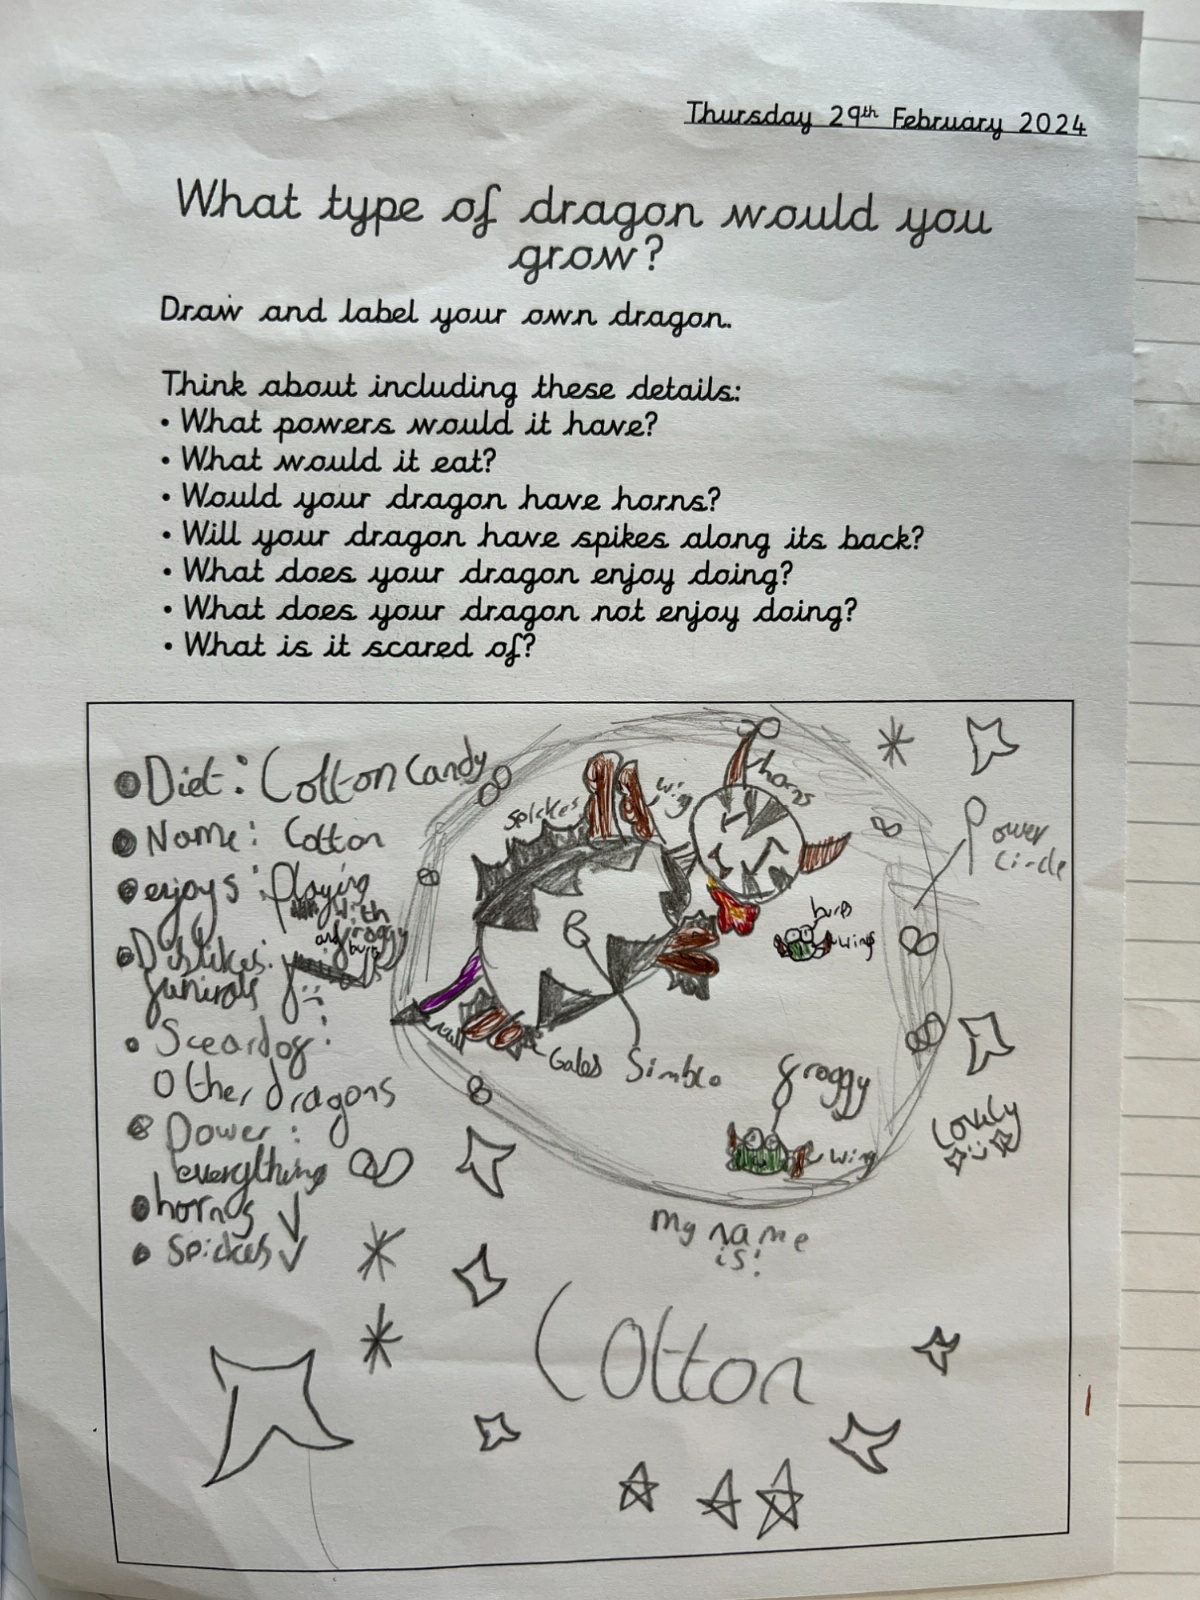 Thursday 29th February 2024
What type of dragon would you
grow?
Draw and label your own dragon.
Think about including these details:
• What powers would it have?
• What would it eat?
• Would your dragon have horns?
• Will your dragon have spikes along its back?
• What does your dragon enjoy doing?
• What does your dragon not enjoy doing?
• What is it scared of?
• Diet: Cotton Candy
• Name: Cotton
• enjoys: Playing
with
groggy
and burb
• Dislikes:
funirals
• Sceardof:
Other dragons
• Power:
everything
• horns ✓
• Spickes ✓
spickes
wing
horns
Power
Circle
burb
wing
Simblo
groggy
wing
Lovely
My name
is!
Cotton